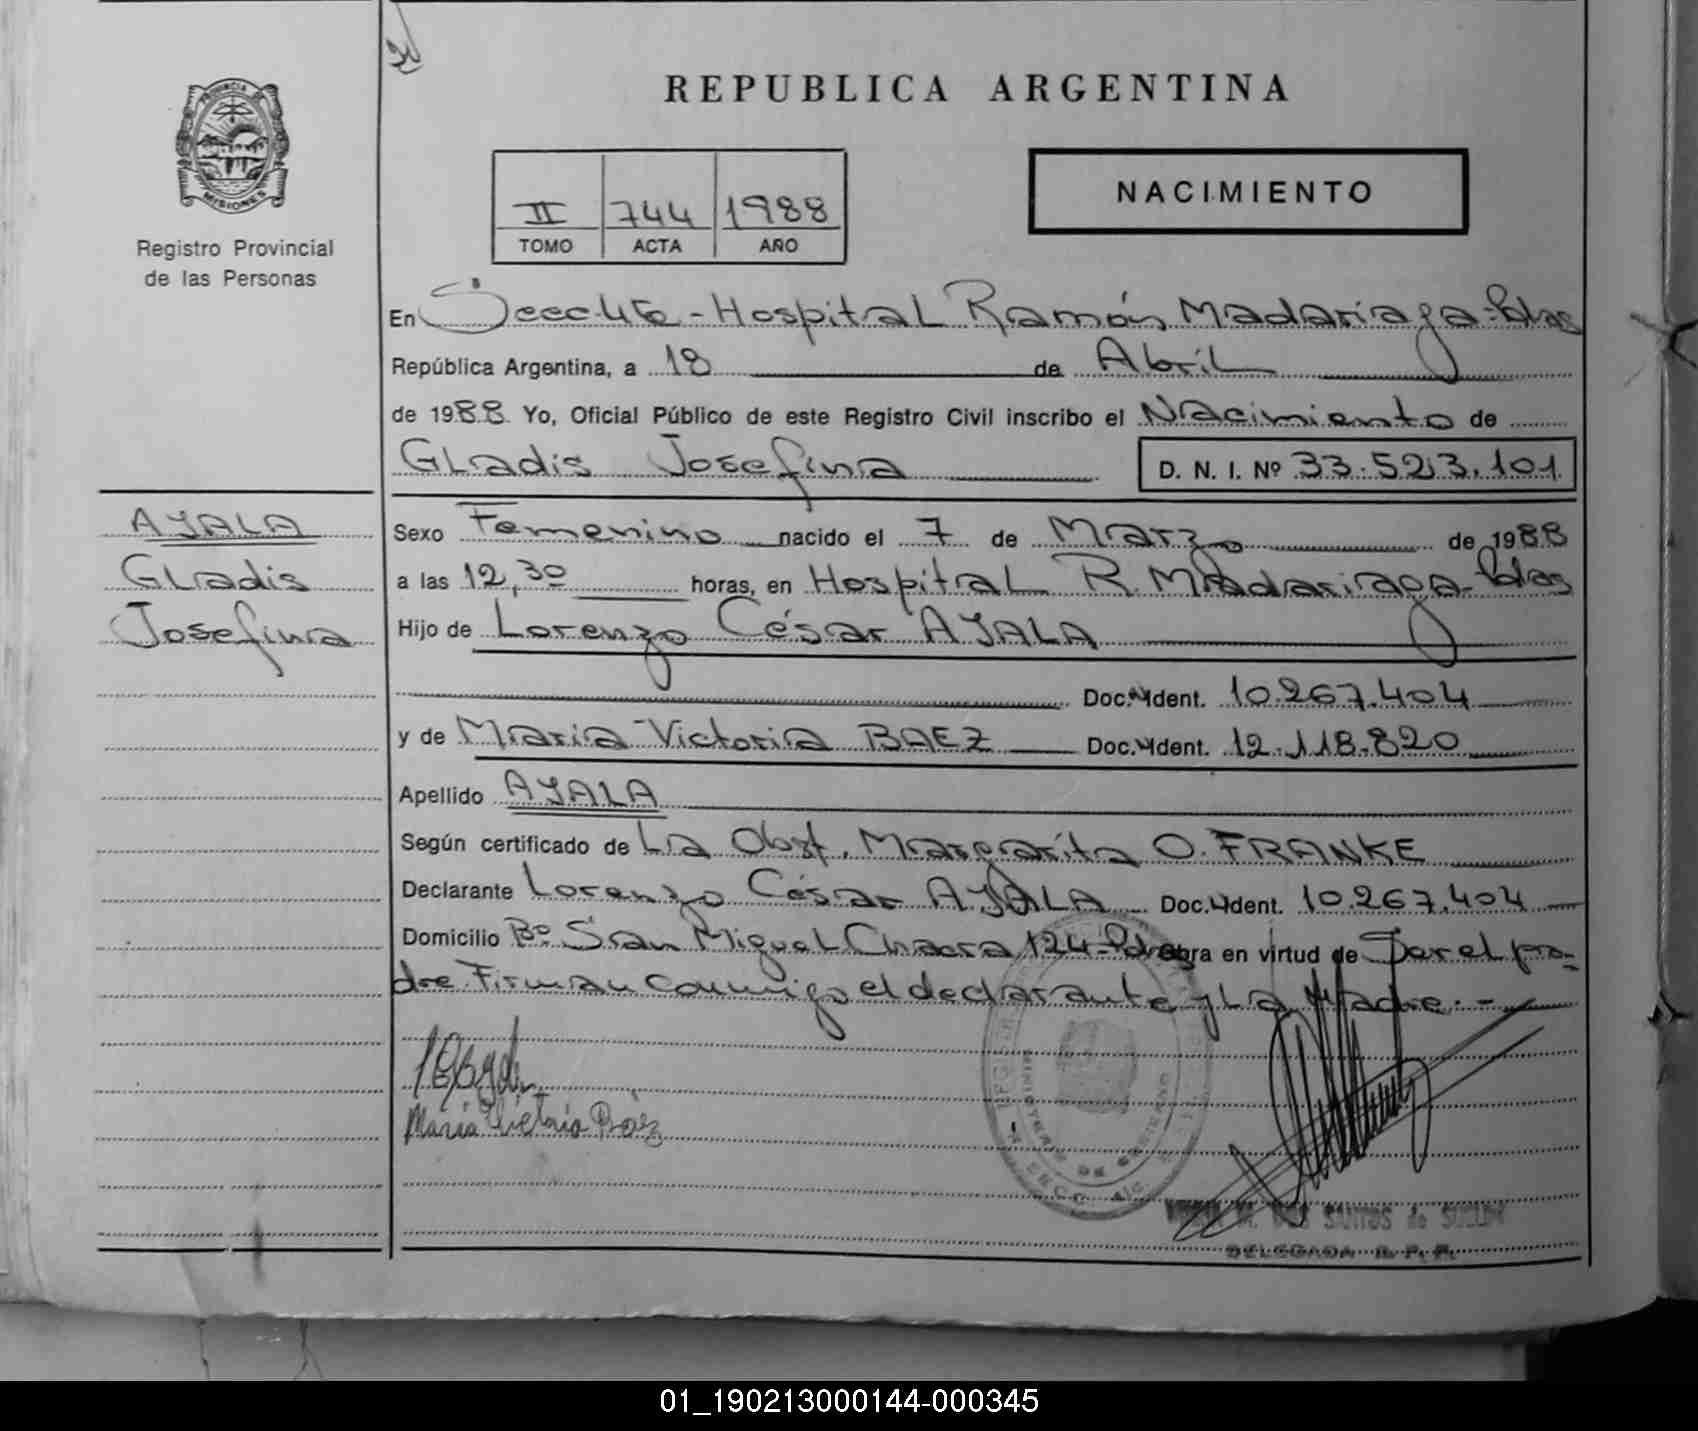 REPUBLICA ARGENTINA
PROVINCIA DE
MISIONES
Registro Provincial
de las Personas
II 744 1988
TOMO ACTA AÑO
NACIMIENTO
En Hospital Ramón Madariaga - Pdas
República Argentina, a 18 de Abril
de 1988 Yo, Oficial Público de este Registro Civil inscribo el Nacimiento de
Gladis Josefina D. N. I. Nº 33.523.101
AYALA
Gladis
Josefina
Sexo Femenino nacido el 7 de Marzo de 1988
a las 12,30 horas, en Hospital R. Madariaga - Pdas
Hijo de Lorenzo César AYALA
Doc. Ident. 10.267.404
y de María Victoria BAEZ Doc. Ident. 12.118.820
Apellido AYALA
Según certificado de La Obst. Margarita O. FRANKE
Declarante Lorenzo César AYALA Doc. Ident. 10.267.404
Domicilio Bº San Miguel Chacra 124 - Pdas obra en virtud de Ser el pa-
dre Firman conmigo el declarante y La Madre. -
María Victoria Báez
DOS SANTOS de
DELEGADA R. P. P.
01_190213000144-000345